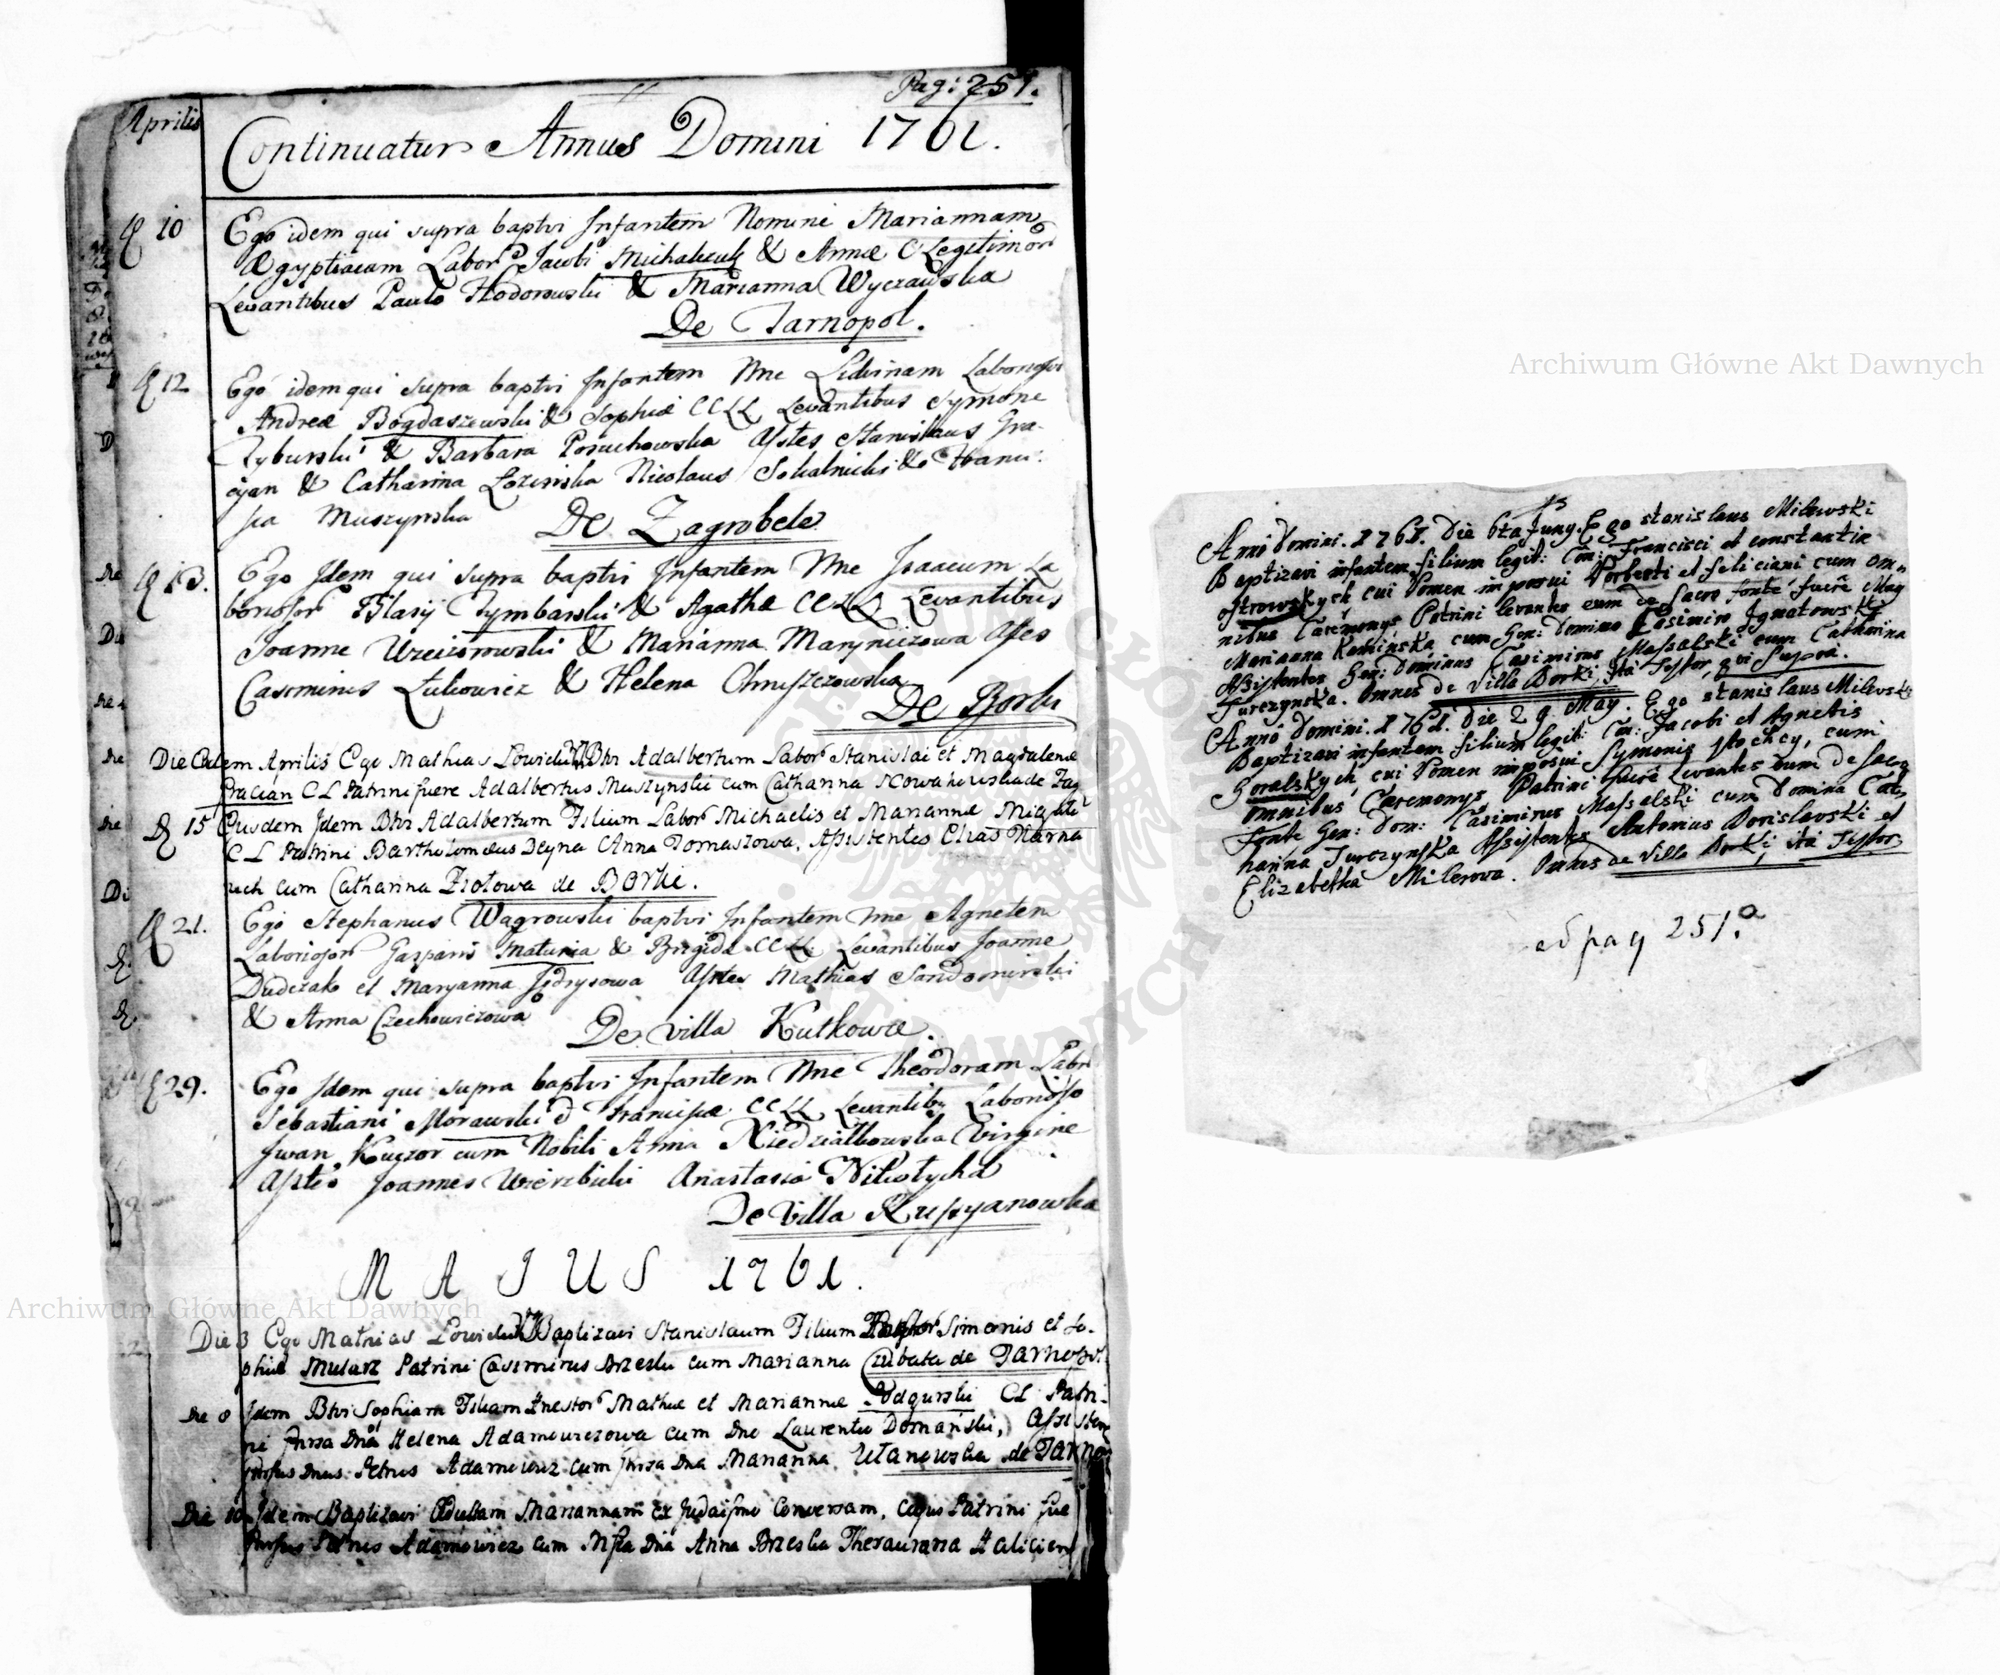 Pag: 251.
Aprilis
Continuatur Annus Domini 1761.
10 Ego idem qui supra baptvi Infantem Nomine Mariannam
Ægyptiacam Labor Jacobi Michalczuk & Annæ C Legitimor
Levantibus Paulo Hodorowski & Marianna Wyczawska
De Tarnopol.
12 Ego idem qui supra baptvi Infantem Nne Lidvinam Laboriosor
Andreæ Bogdaszewski & Sophiæ CCLL Levantibus Symone
Zyburski & Barbara Posuchowska Asstes Stanislaus Gra-
cyan & Catharina Lozinska Nicolaus Sokalnicki & Franci-
sca Muszynska De Zagrobela
13. Ego Idem qui supra baptvi Infantem Nne Isaacum La
boriosor Blasij Tymbarski & Agathæ CCLL Levantibus
Joanne Wzciorowski & Marianna Maryniczowa Asstes
Casimirus Łukowicz & Helena Chruszczowska
De Borki
Die Eadem Aprilis Ego Mathias Lowicki Btvi Adalbertum Labor Stanislai et Magdalenæ
Gracian CL Patrini fuere Adalbertus Muszynski cum Catharina Nowakowska de Zag
15 Eiusdem Idem Btvi Adalbertum Filium Labor Michaelis et Mariannæ
CL Patrini Bartholomæus Deyna Anna Tomaszowa. Assistentes Elias Harna
rech cum Catharina Złotowa de Borki.
21. Ego Stephanus Wągrowski baptvi Infantem Nne Agnetem
Laboriosor Gaspari Maturia & Brigidæ CCLL Levantibus Joanne
Dudczak et Maryanna Jędrysowa Asstes Mathias Sandomirski
& Anna Czechowiczowa De villa Kutkowce.
29. Ego Idem qui supra baptvi Infantem Nne Theodoram Labr
Sebastiani Morawski & Franciscæ CCLL Levantibq Laborioso
Iwan Kuczor cum Nobili Anna Niedziałkowska Virgine
Asstes Joannes Wierzbicki Anastasia Nikołycha
De Villa Krussyanowka
MAJUS 1761.
Die 3 Ego Mathias Lowicki Baptizavi Stanislaum Filium Simonis et So-
phiæ Mularz Patrini Casimirus Brzeski cum Marianna Czubata de Tarnopol
Die 8 Idem Btvi Sophiam Filiam Hnestor Mathiæ et Mariannæ Podgurski CL Patri-
ni Helena Adamowiczowa cum Dno Laurentio Domański, Assisten
Dnus Petrus Adamowicz cum Dna Marianna Ułanowska de Tarno
Die 10 Idem Baptizavi Adultam Mariannam Ex Judaismo Conversam, Cuius Patrini fue
Petrus Adamowicz cum Dna Anna Brzeska Thesauraria Halicien
Anno Domini. 1761. Die 6ta Juny. Ego Stanislaus Milewski
Baptizavi infantem filium legit: Con: Francisci et Constantiæ
Ostrowskych, cui Nomen imposui Norberti et Feliciani cum om-
nibus Caremonys Patrini levantes eum de Sacro fonte fuere Mag
Marianna Kaminska cum Gen: Domino Casimiro Ignatowski
Assistentes Gen: Dominus Casimirus Massalski cum Catharina
Turczynska. Omnes de Villa Borki, Ita Testor, qui supra.
Anno Domini. 1761. Die 29. May. Ego Stanislaus Milewski
Baptizavi infantem filium legit: Con: Jacobi et Agnetis
Goralskych, cui Nomen imposui Symonis Stockcy, cum
omnibus Caremonys Patrini fuere Levantes eum de Sacro
Fonte Gen: Dom: Casimirus Massalski cum Domina Cat-
harina Turczynska Assistentes Antonius Borislavski et
Elizabetha Milerowa. Omnes de Villa Borki, ita Testor
ad pag 251.a
Archiwum Główne Akt Dawnych
Archiwum Główne Akt Dawnych